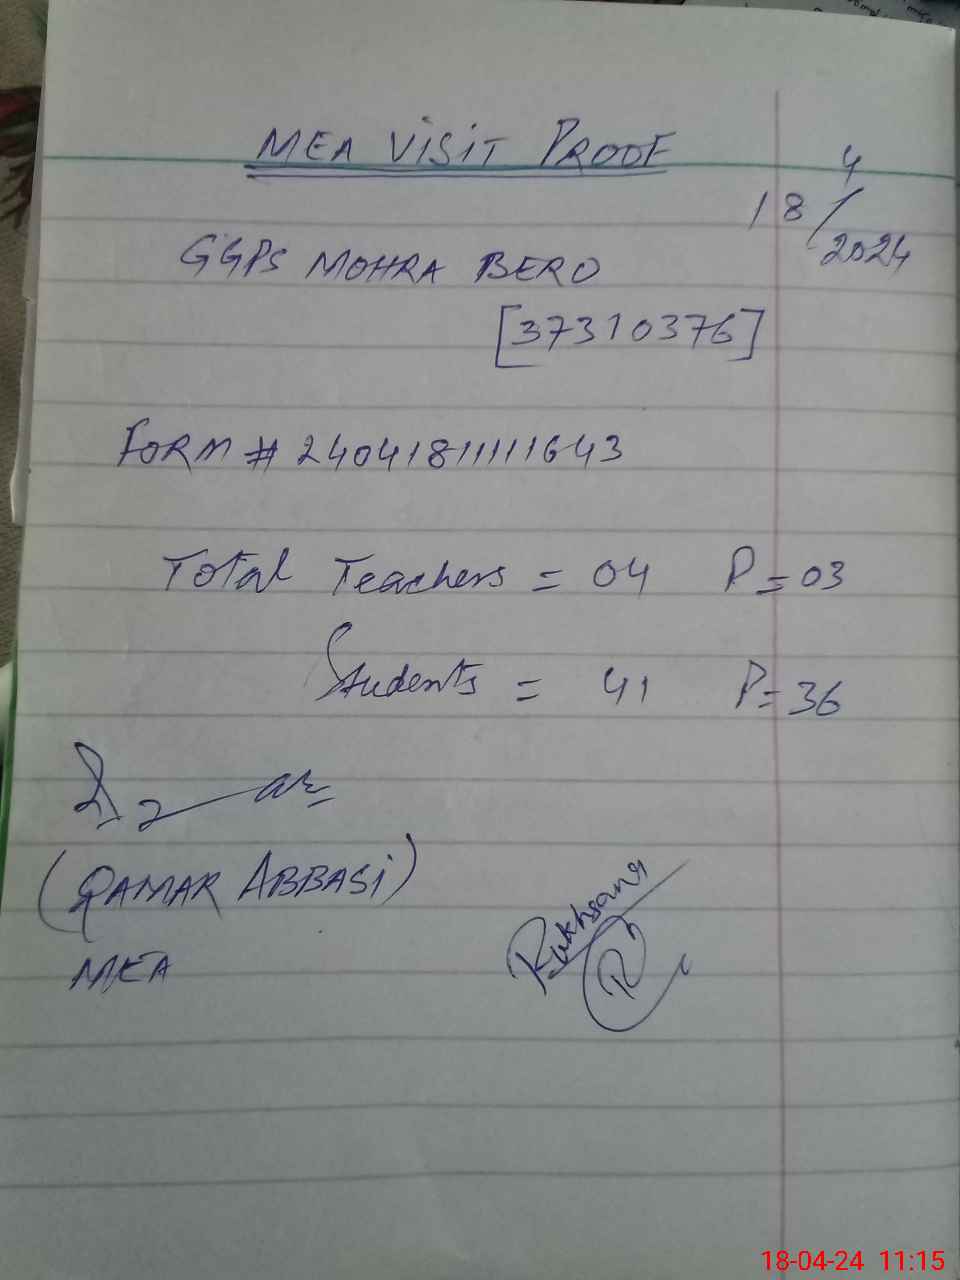 MEA VISIT PROOF
18/4/2024
GGPS MOHRA BERO
[37310376]
FORM # 24041811111643
Total Teachers = 04 P = 03
Students = 41 P = 36
(QAMAR ABBASi)
MEA
Rukhsana
R
18-04-24 11:15